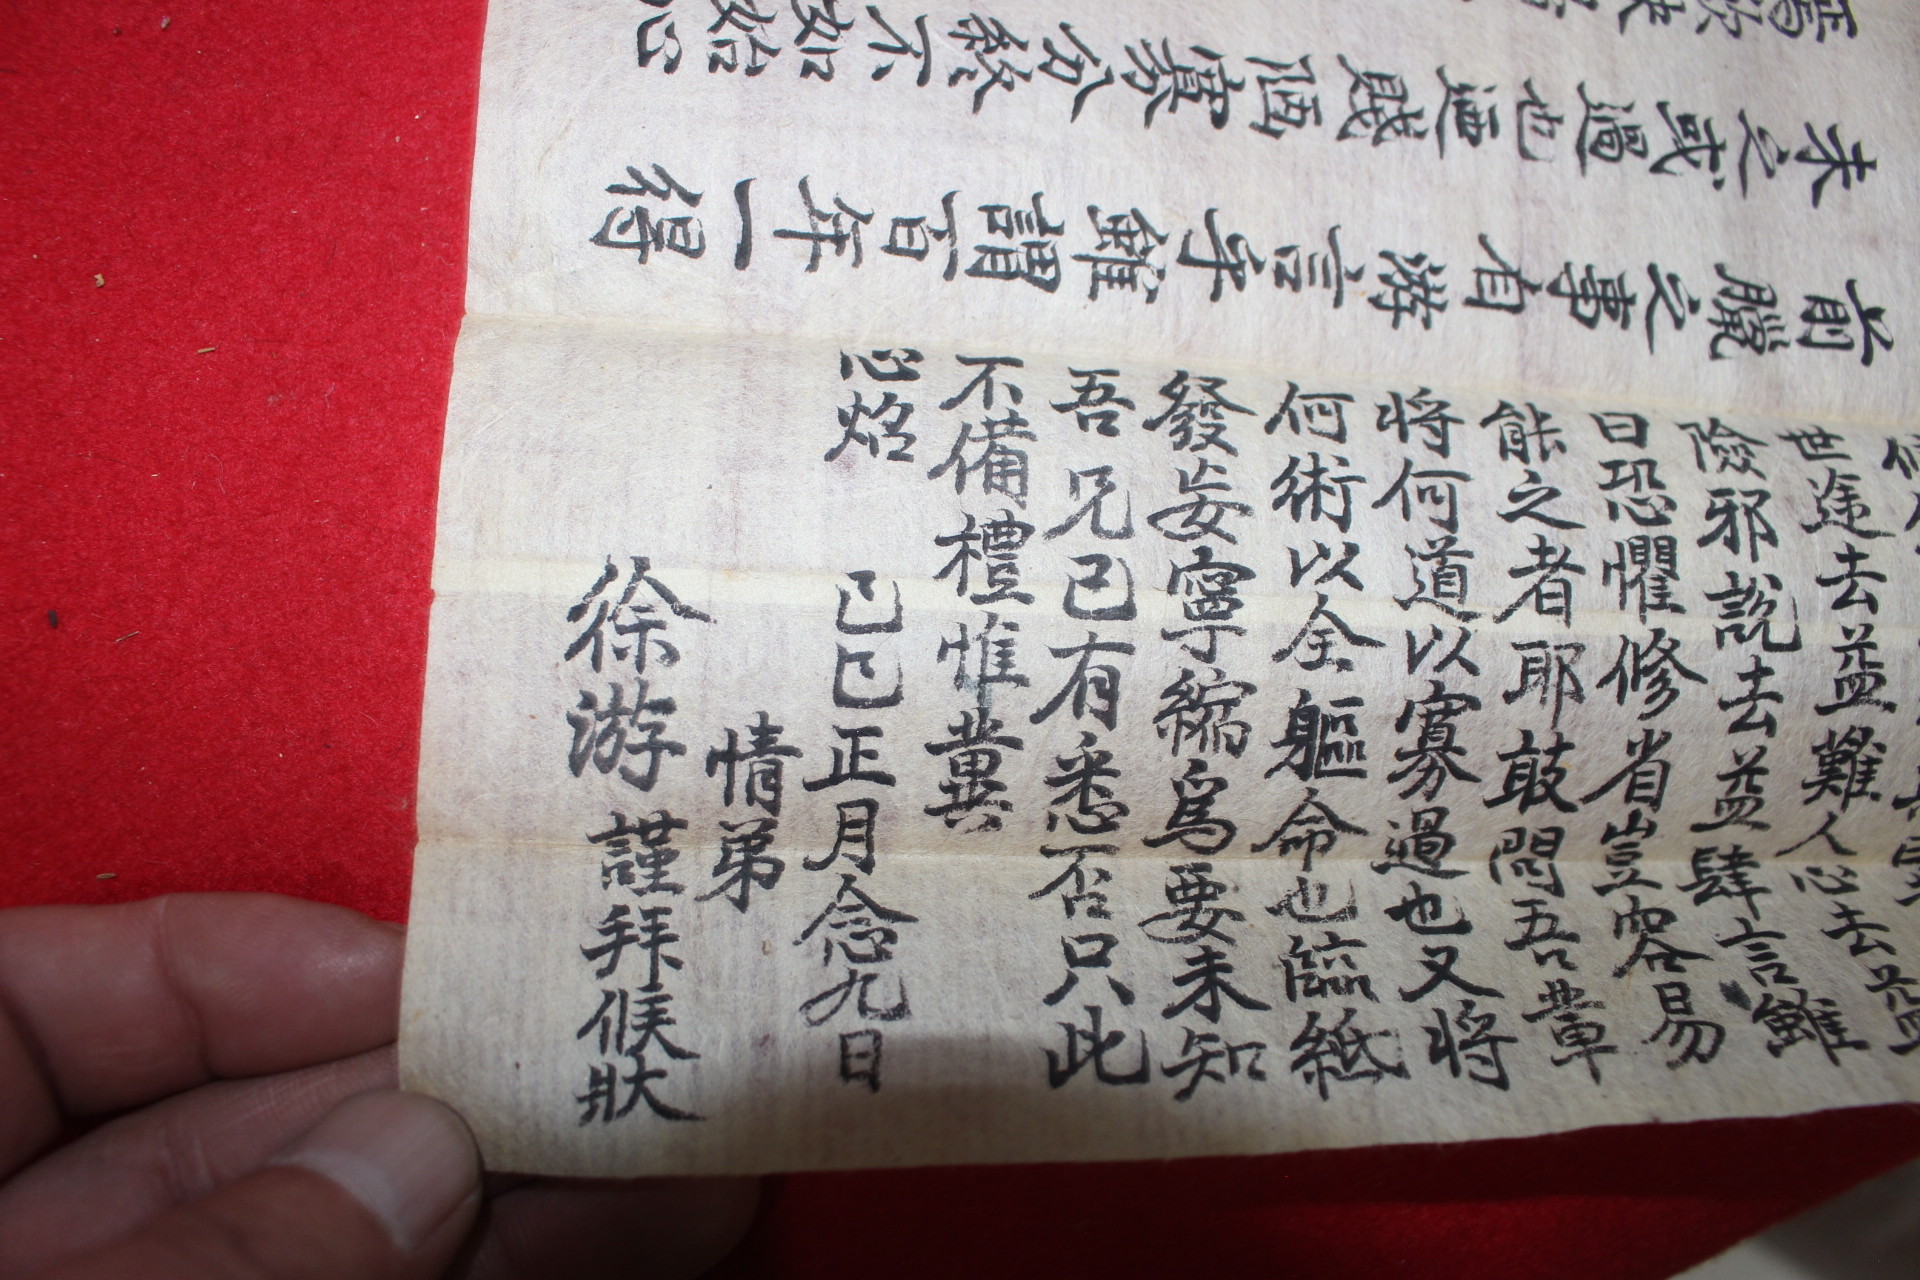 世途去益難人心去益
險邪說去益肆言雖
曰恐懼修省豈容易
能之者耶敢問吾輩
將何道以寡過也又將
何術以全軀命也臨紙
發妄寧縮爲要未知
吾兄已有悉否只此
不備禮惟冀
必炤
己巳正月念九日
情弟
徐游謹拜候狀
前臘之事自游言乎雖謂百年一得
未之或過也迺賤個寡分終不如始心